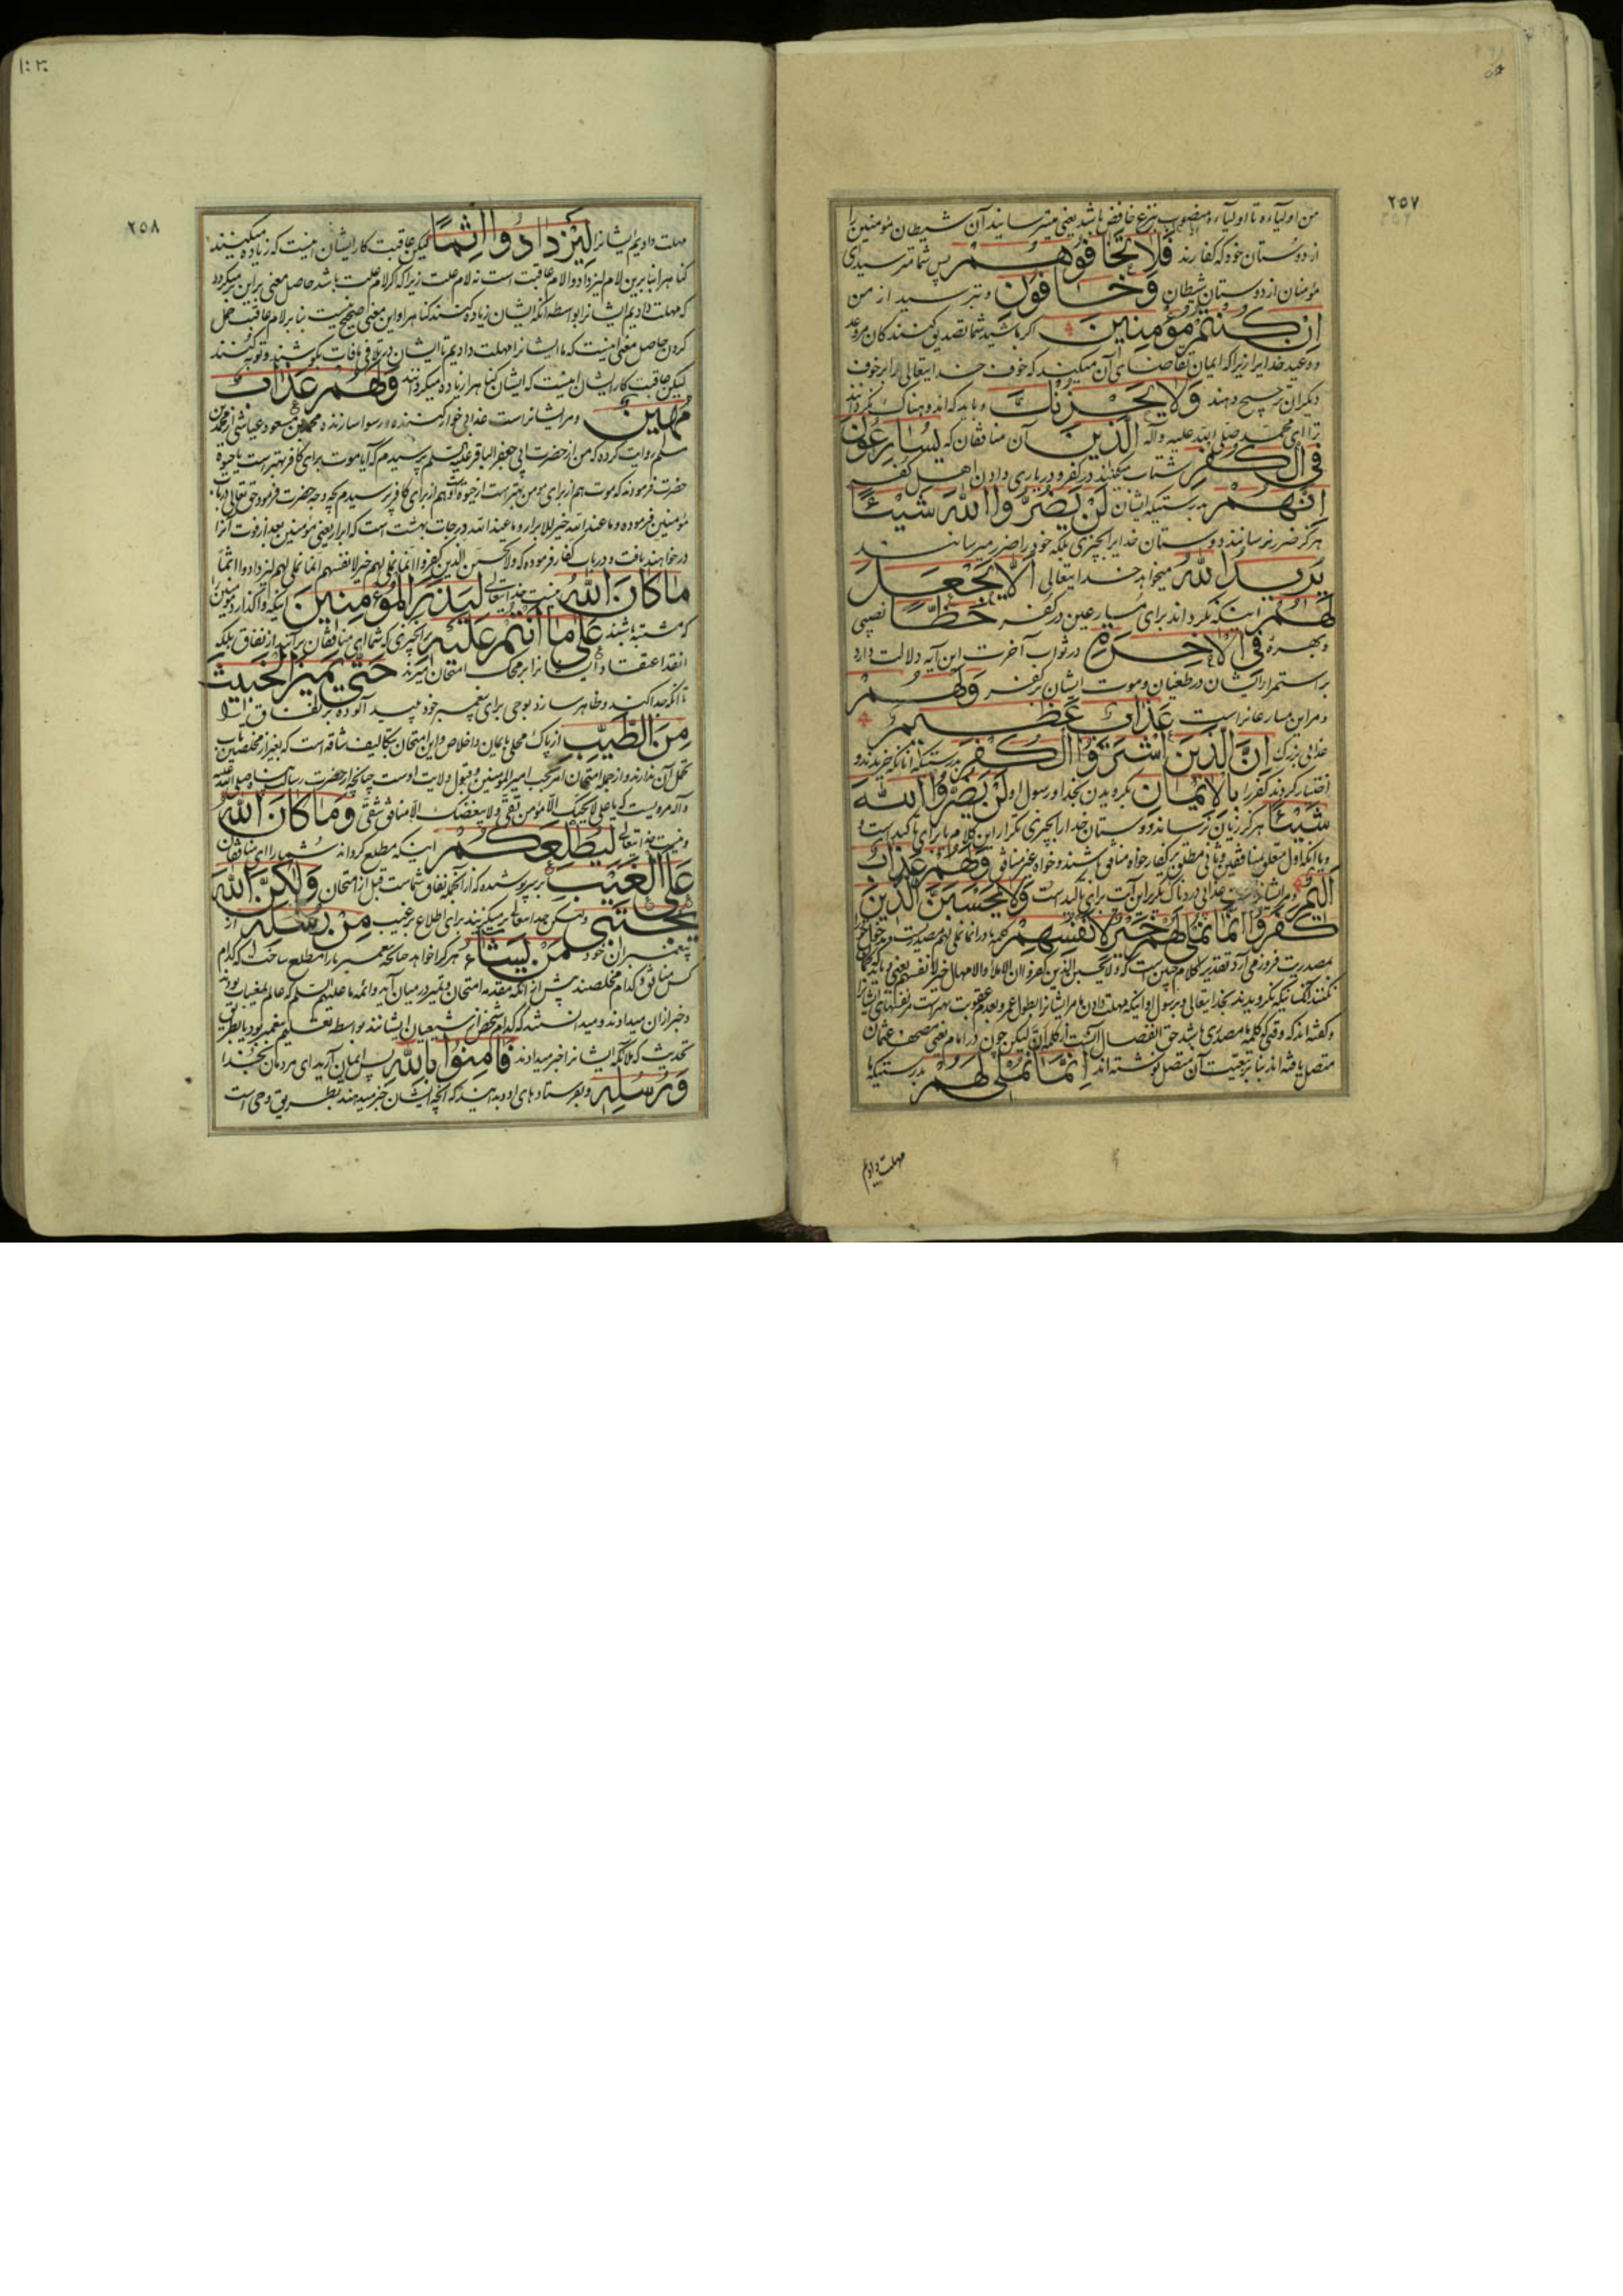 ۲۵۷
من اولیآءه تا اولیآءه منصوب بنزع خافض باشد یعنی میترساند آن شیطان مؤمنین را
از دوستان خود که کفارند فَلا تَخافُوهُمْ پس شما مترسید ای
مؤمنان از دوستان شیطان وَخافُونِ و بترسید از من
اِنْ كُنْتُمْ مُؤْمِنينَ اگر باشید شما تصدیق کنندکان مر وعد
و وعید خدایرا زیرا که ایمان تقاضای آن میکند که خوف خدایتعالی را بر خوف
دیگران ترجیح دهند وَلا يَحْزُنْكَ و باید که اندوهناک نکردانند
ترا ای محمد صلی الله علیه وآله الَّذينَ آن منافقان که يُسارِعُونَ
فِي الْكُفْرِ شتاب میکنند در کفر و در یاری دادن اهل کفر
اِنَّهُمْ بدرستیکه ایشان لَنْ يَضُرُّوا اللهَ شَيْئًا
هرکز ضرر نرسانند دوستان خدایرا بچیزی بلکه خود را ضرر میرسانند
يُريدُ اللهُ میخواهد خدایتعالی اَلّا يَجْعَلَ
لَهُمْ اینکه نکرداند برای مسارعین در کفر حَظًّا نصیبی
و بهرهٔ فِي الْاخِرَةِ در ثواب آخرت این آیه دلالت دارد
بر استمرار ایشان در طغیان و موت ایشان بر کفر وَلَهُمْ
و مر این مسارعانراست عَذابٌ عَظيمٌ
عذابی بزرک اِنَّ الَّذينَ اشْتَرَوُا الْكُفْرَ بدرستیکه آنانکه خریدند و
اختیار کردند کفر را بِالْايمانِ بکرویدن بخدا و رسول او لَنْ يَضُرُّوا اللهَ
شَيْئًا هرکز زیان نرساند دوستان خدا را بچیزی تکرار این کلام یا برای تاکید است و
و یا آنکه اول متعلق بمنافقین و ثانی مطلق بر کفار خواه منافق باشند و خواه غیر منافق وَلَهُمْ عَذابٌ
اَليمٌ و مر ایشانراست عذابی دردناک تکرار این آیت برای تاکید است وَلا يَحْسَبَنَّ الَّذينَ
كَفَرُوا اَنَّما نُمْلي لَهُمْ خَيْرٌ لِاَنْفُسِهِمْ کلمه ما در انما نملی لهم مصدریست
بمصدریت فرو زمی آرد تقدیر کلام چنین است که ولا یحسبن الذین کفروا ان الاملاء والامهال خیر لانفسهم یعنی و باید که کمان
نکنند آنکسانیکه نکرویدند بخدایتعالی و برسول او اینکه مهلت دادن ما مر ایشانرا بطول عمر و بعدم عقوبت بهتر است مر نفسهای ایشانرا
و کفته اند که وقتی که کلمه ما مصدری باشد حق انفصال آنست از کلمه ان لیکن چون در امام یعنی مصحف عثمان
متصل یافته اند بنابر تبعیت آن متصل نوشته اند اِنَّما نُمْلي لَهُمْ بدرستیکه ما
مهلت دادیم
۲۵۸
مهلت دادیم ایشانرا لِيَزْدادُوا اِثْمًا لیکن عاقبت کار ایشان اینست که زیاده میکنند
کناه را بنابرین لام لیزدادوا لام عاقبت است نه لام علت زیرا که اکر لام علت باشد حاصل معنی بر این میکردد
که مهلت دادیم ایشانرا بواسطه آنکه ایشان زیاده کنند کناه را و این معنی صحیح نیست بنابر لام عاقبت حمل
کردن حاصل معنی اینست که ما ایشانرا مهلت دادیم تا ایشان در تلافی مافات بکوشند و توبه کنند
لیکن عاقبت کار ایشان اینست که ایشان کناه را زیاده میکردانند وَلَهُمْ عَذابٌ
مُهينٌ و مر ایشانراست عذابی خوار کننده و رسوا سازنده محمد بن مسعود عیاشی از محمد بن
مسلم روایت کرده که من از حضرت ابی جعفر الباقر علیه السلم پرسیدم که آیا موت برای کافر بهتر است یا حیوة
حضرت فرمودند که موت هم از برای مومن بهتر است از حیوة او و هم از برای کافر پرسیدم بچه وجه حضرت فرمود حق تعالی در باب
مؤمنین فرموده و ما عند الله خیر للابرار و ما عند الله درجات بهشت است که ابرار یعنی مؤمنین بعد از موت آنرا
در خواهند یافت و در باب کفار فرموده که ولا یحسبن الذین کفروا انما نملی لهم خیر لانفسهم انما نملی لهم لیزدادوا اثما
ما كانَ اللهُ نیست خدایتعالی لِيَذَرَ الْمُؤْمِنينَ اینکه واکذارد مؤمنین را
که مشتبه باشند عَلى ما اَنْتُمْ عَلَيْهِ بر آنچیزی که شما ای منافقان بر آنید از نفاق بلکه
انقد اعتقاد ایشانرا بر محک امتحان میزند حَتّى يَميزَ الْخَبيثَ
تا آنکه جدا کند و ظاهر سازد بوحی برای پیغمبر خود پلید آلوده بر نفاق را
مِنَ الطَّيِّبِ از پاک محلی بایمان و اخلاص و این امتحان بتکالیف شاقه است که بغیر از مخلصین تاب
تحمل آن ندارند و از جمله امتحان امر بحب امیر المومنین و قبول ولایت اوست چنانچه از حضرت رسالت پناه صلی الله علیه
وآله مرویست که یا علی لا یحبک الا مؤمن تقی ولا یبغضک الا منافق شقی وَما كانَ اللهُ
و نیست خدایتعالی لِيُطْلِعَكُمْ اینکه مطلع کرداند شما را ای منافقان
عَلَى الْغَيْبِ بر سر پوشیده که از آنجمله نفاق شماست قبل از امتحان وَلكِنَّ اللهَ
يَجْتَبي ولیکن خدایتعالی برمیکزیند برای اطلاع بر غیب مِنْ رُسُلِه از
پیغمبران خود مَنْ يَشاءُ هر کرا خواهد چنانچه پیغمبر ما را مطلع ساخت که کدام
کس منافق و کدام مخلصند پیش از آنکه مقدمه امتحان و تمیز در میان آید و ائمه ما علیهم السلم که عالم بمغیبات بودند
و خبر از آن میدادند و میدانستند که کدام شخص از شیعیان ایشانند بواسطه تعلیم پیغمبر بود یا بطریق
تحدیث که ملائکه ایشانرا خبر میدادند فَامِنُوا بِاللهِ پس ایمان آرید ای مردمان بخدا
وَرُسُلِه و بفرستادهای او و بدانید که آنچه ایشان خبر میدهند بطریق وحی است